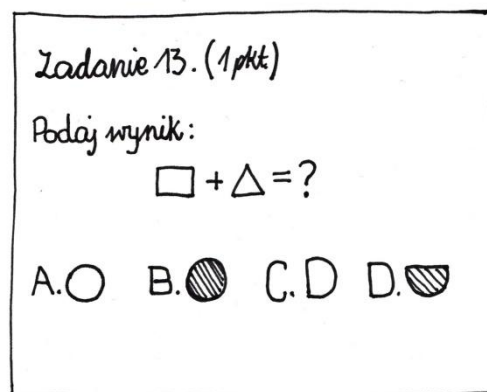 Zadanie 13. (1 pkt.)
Podaj wynik:
□ + △ = ?
A. ○ B. C. D D.